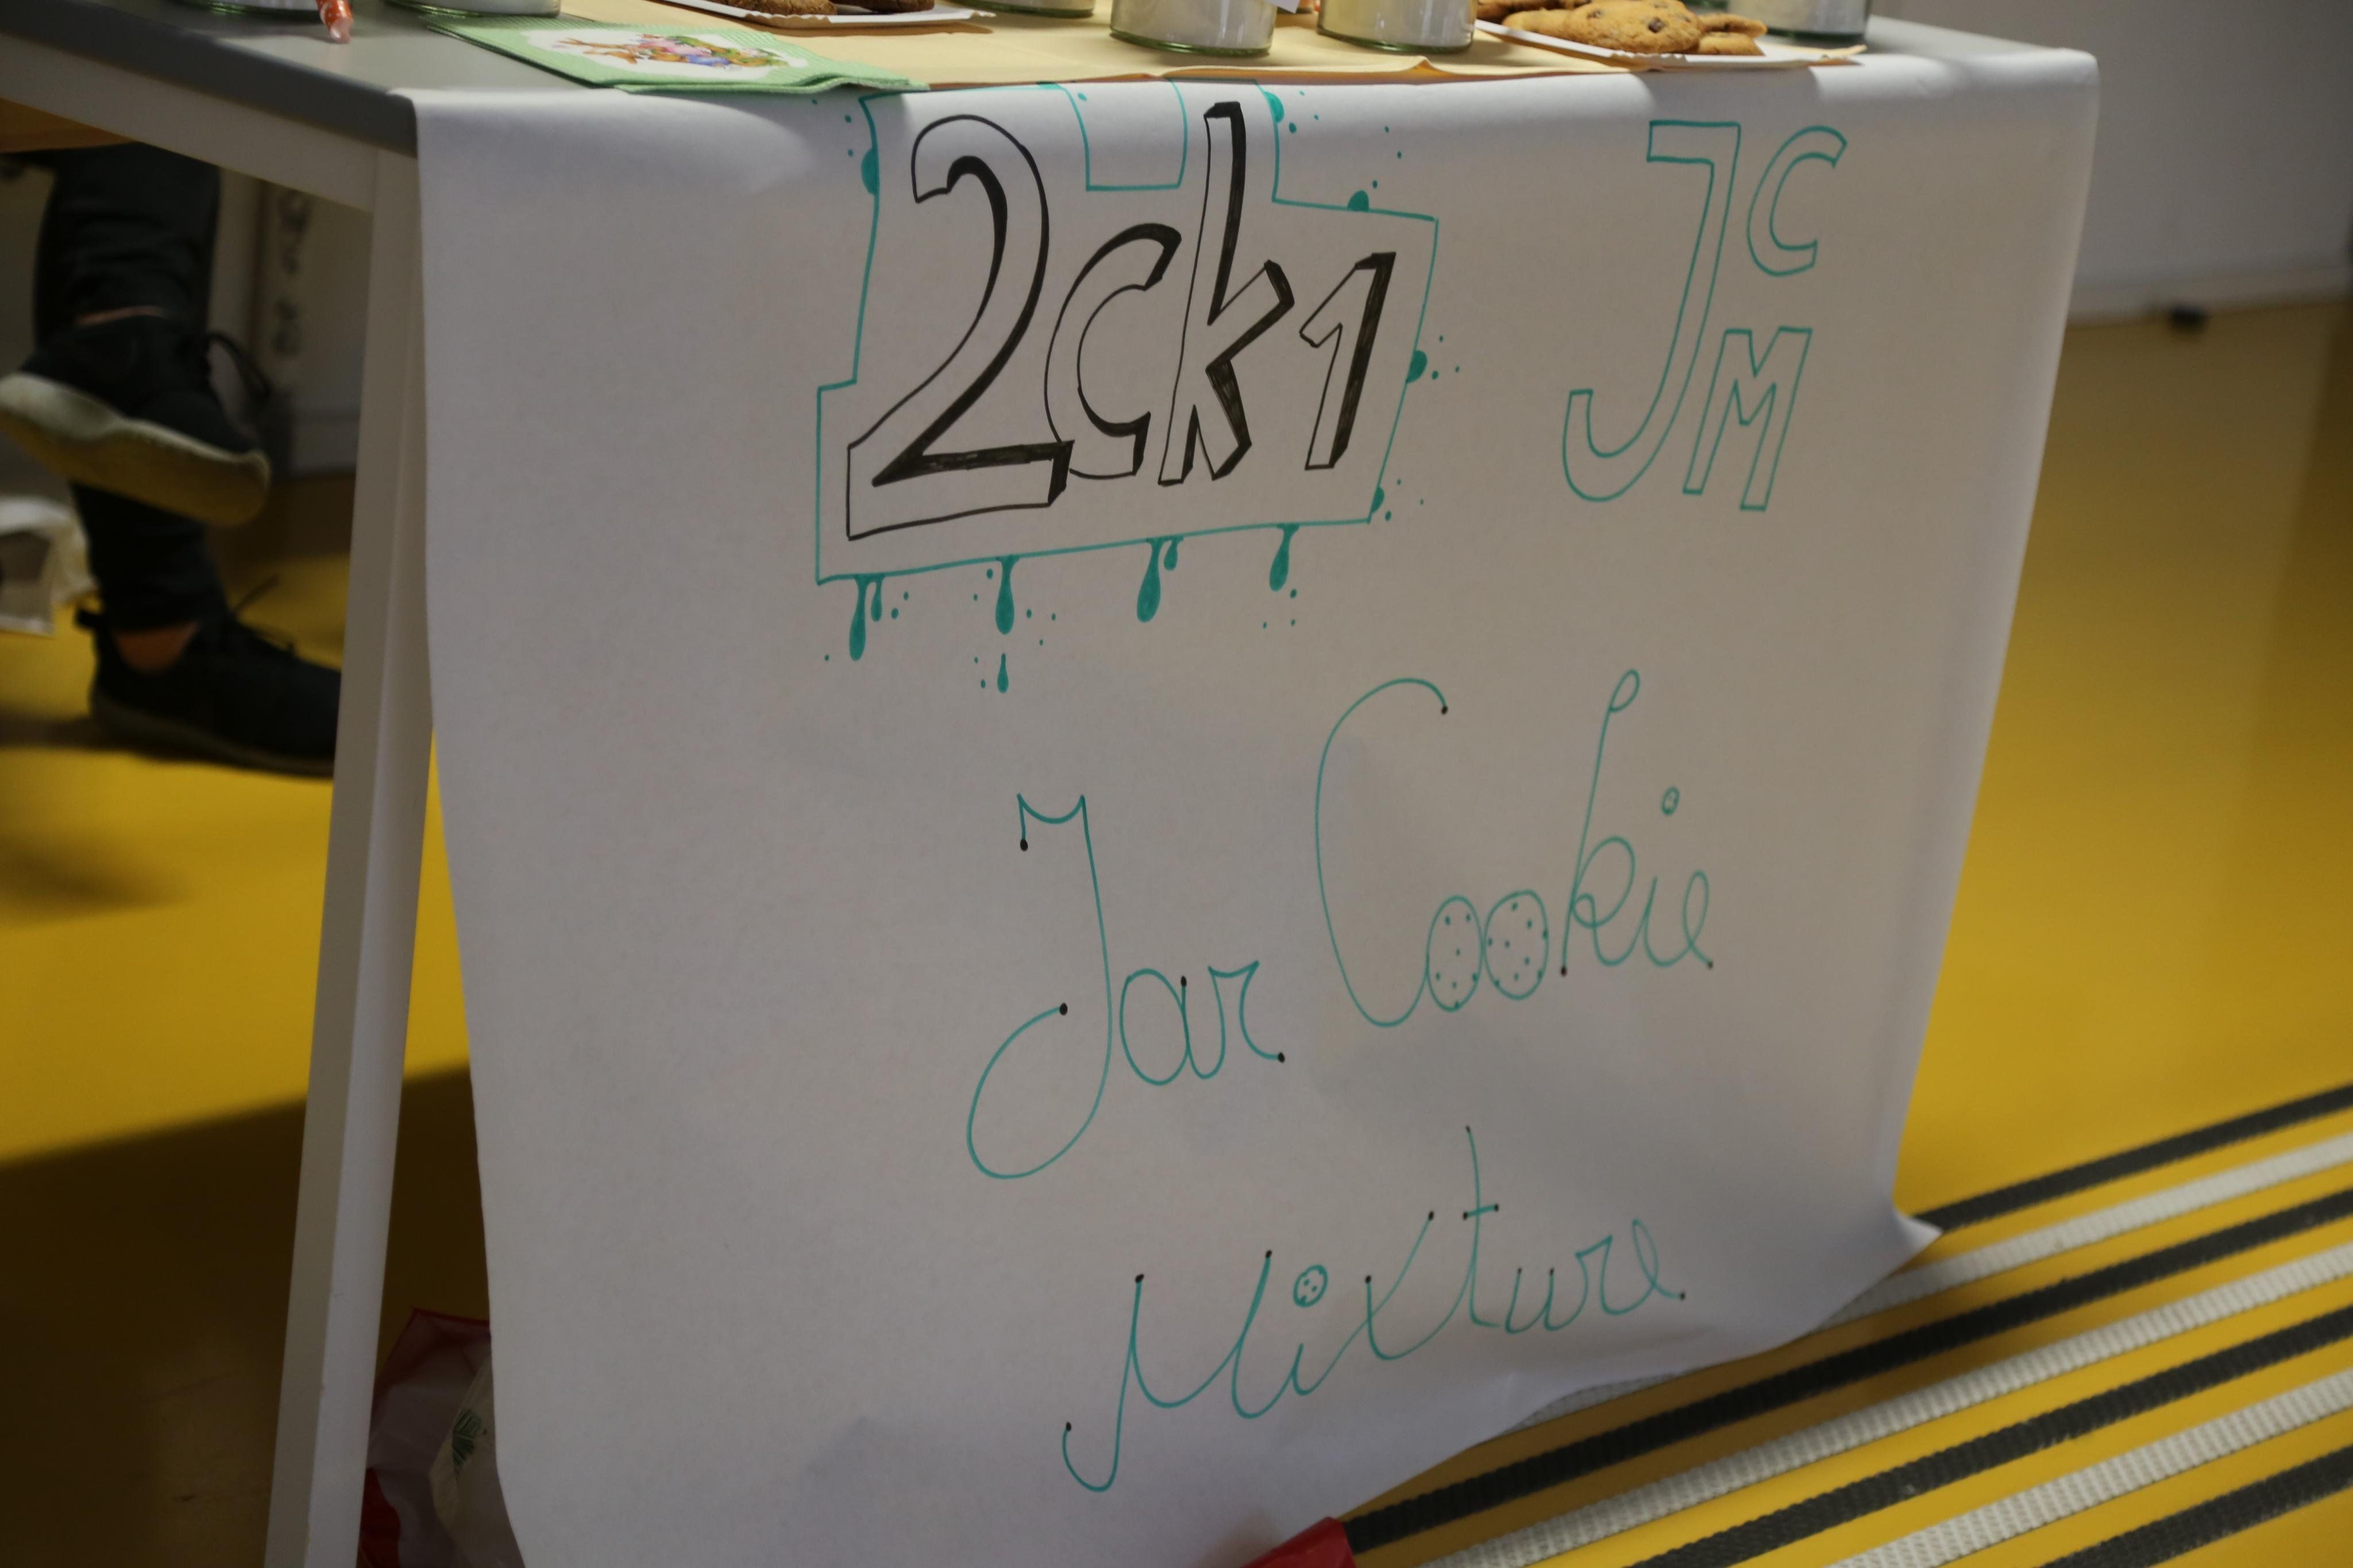 2ck1
JC
M
Jar Cookie
Mixture